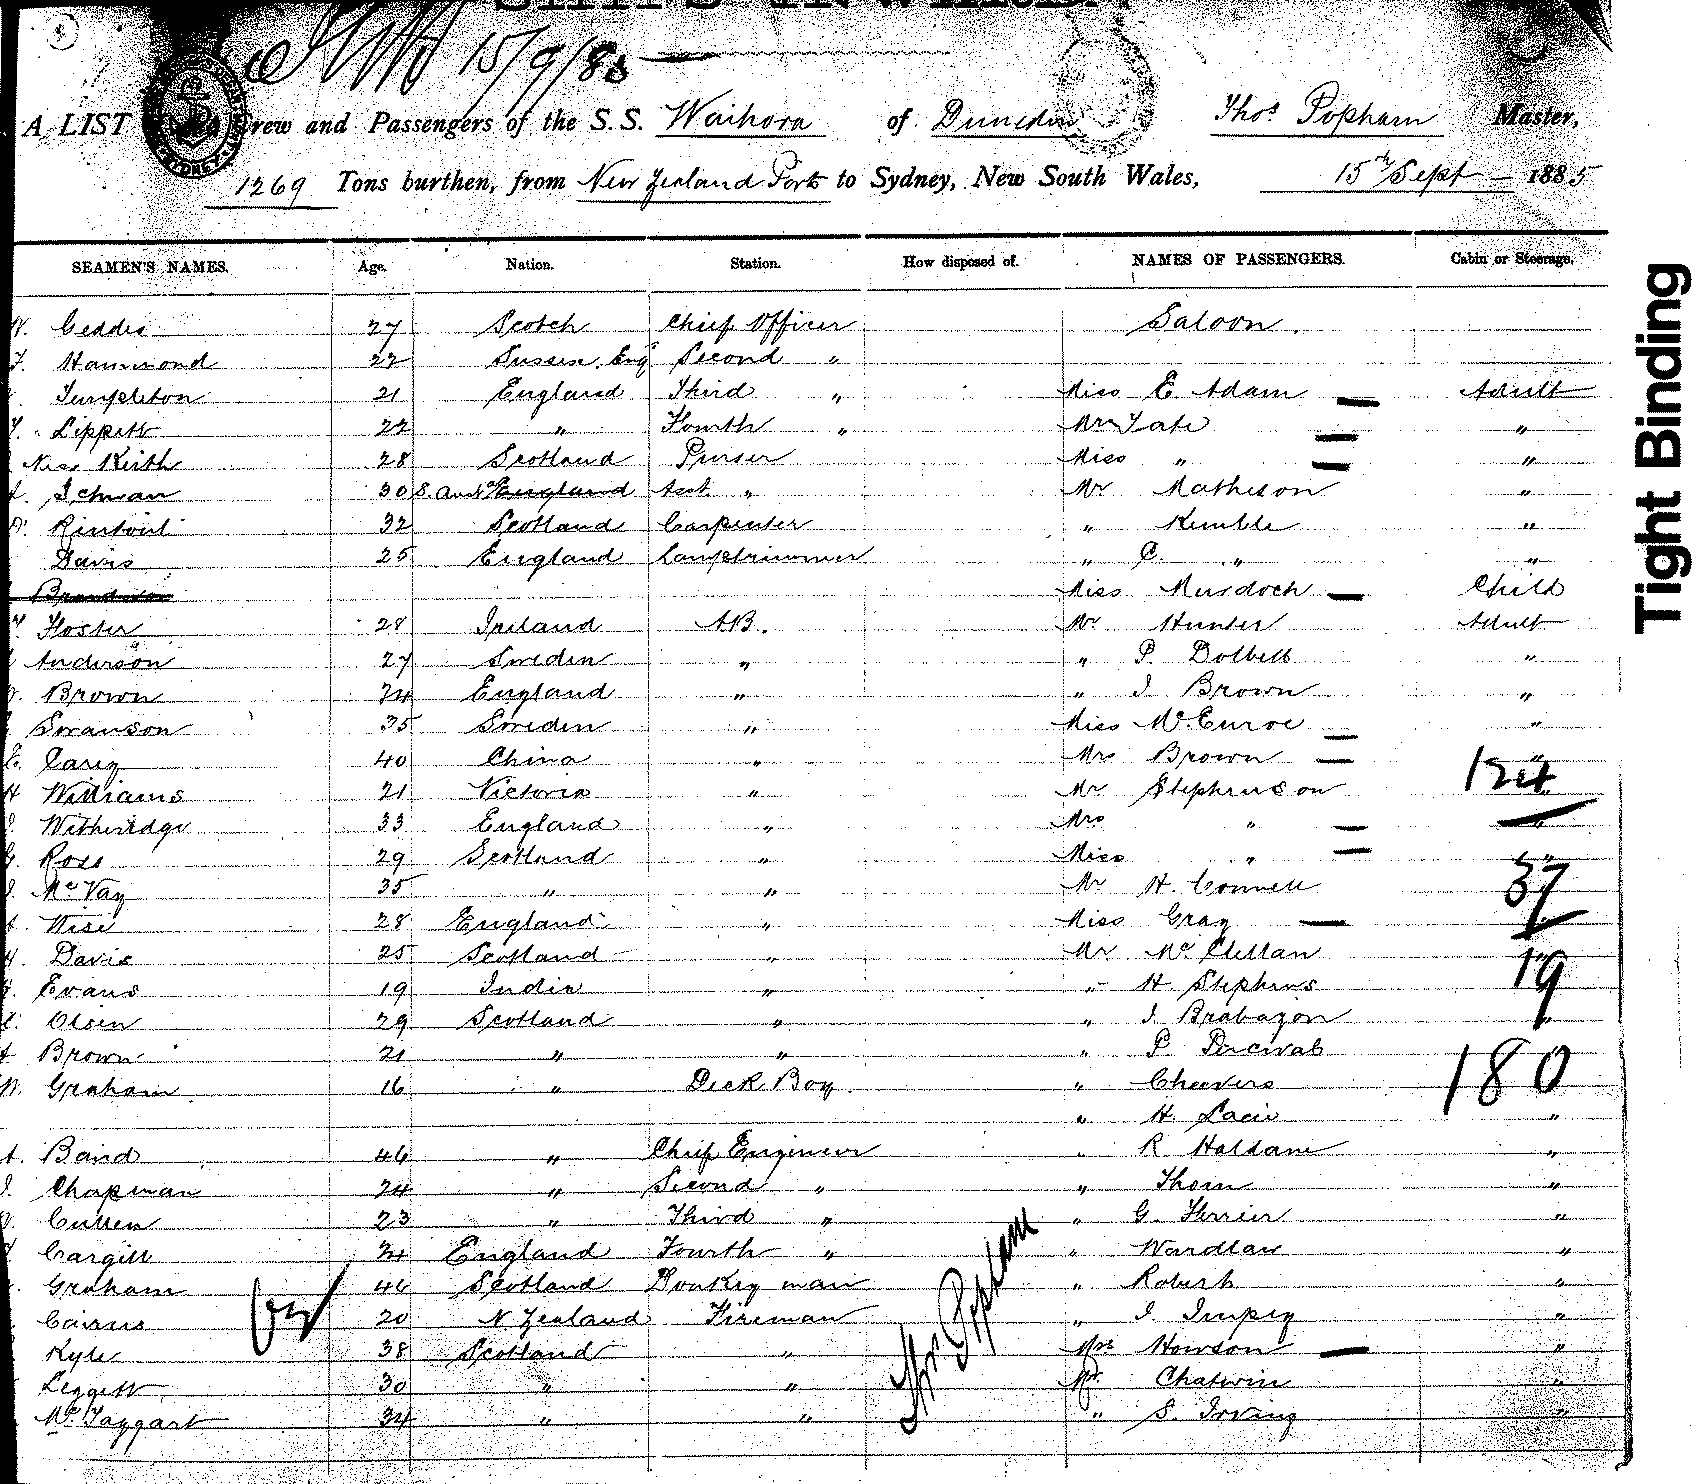 15/9/85
A LIST Crew and Passengers of the S.S. Waihora of Dunedin Thos Popham Master,
1269 Tons burthen, from New Zealand Ports to Sydney, New South Wales, 15th Sept 1885
SEAMEN'S NAMES. Age. Nation. Station. How disposed of. NAMES OF PASSENGERS. Cabin or Steerage.
Geddes 27 Scotch Chief Officer Saloon.
Hammond 22 Sussex, Eng Second "
Templeton 21 England Third " Miss E Adam Adult
Lippett 22 " Fourth " Mrs Tate "
Keith 28 Scotland Purser Miss " "
30 England Asst " Mr Matheson "
Rintoul 32 Scotland Carpenter " Kemble "
Davis 25 England Lamptrimmer " C. " "
Miss Murdoch Child
Foster 28 Ireland AB. Mr Hunter Adult
Anderson 27 Sweden " " P. Dolbell "
Brown 24 England " " J Brown "
Swanson 35 Sweden " Miss McEuroe "
Carey 40 China " Mrs Brown "
H Williams 21 Victoria " Mr Stephenson 124
Witheridge 33 England " Mrs " "
G. Ross 29 Scotland " Miss " "
J. McVay 35 " " Mr H. Connell 37
Wise 28 England " Miss Gray "
Davis 25 Scotland " Mr McClellan 19
Evans 19 India " " H Stephens
Olsen 29 Scotland " " J. Brabazon "
Brown 21 " " " P. Percival
Graham 16 " Deck Boy " Cheevers 180
" H. Lacie "
Baird 46 " Chief Engineer " R Haldane "
J. Chapman 24 " Second " " Thom "
Cullen 23 " Third " " G. Ferrier "
Cargill 24 England Fourth " " Wardlaw "
Graham 46 Scotland Donkey man " Robersh "
Cairns 20 N Zealand Fireman " J Impey "
Kyle 38 Scotland " Mrs Howson "
Leggett 30 " " Mr Chatwin "
McTaggart 34 " " " S. Irving "
Thos Popham
Tight Binding